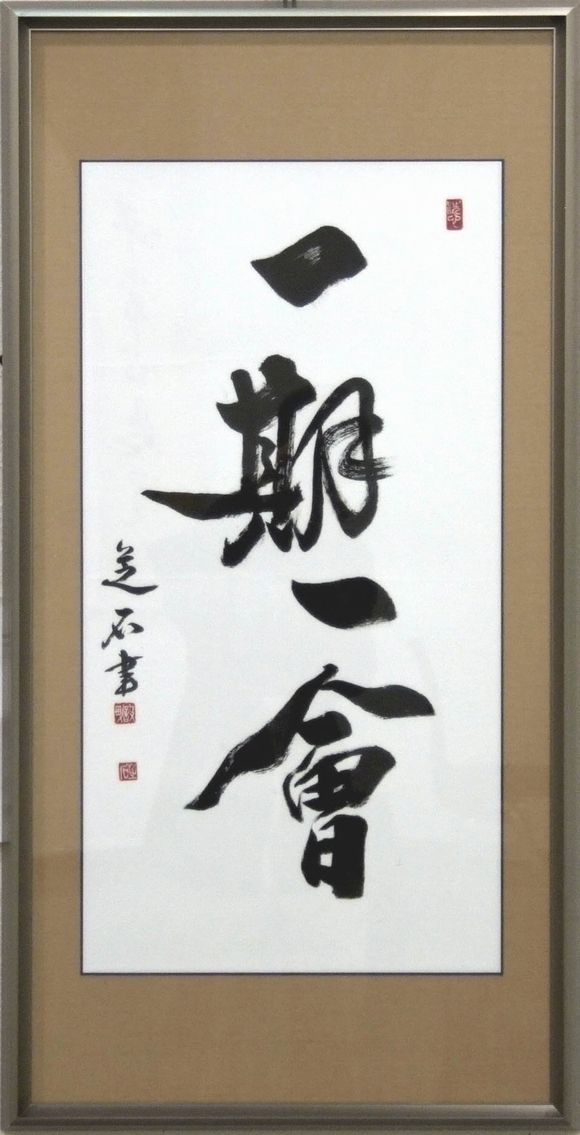 一期一會
芝石書